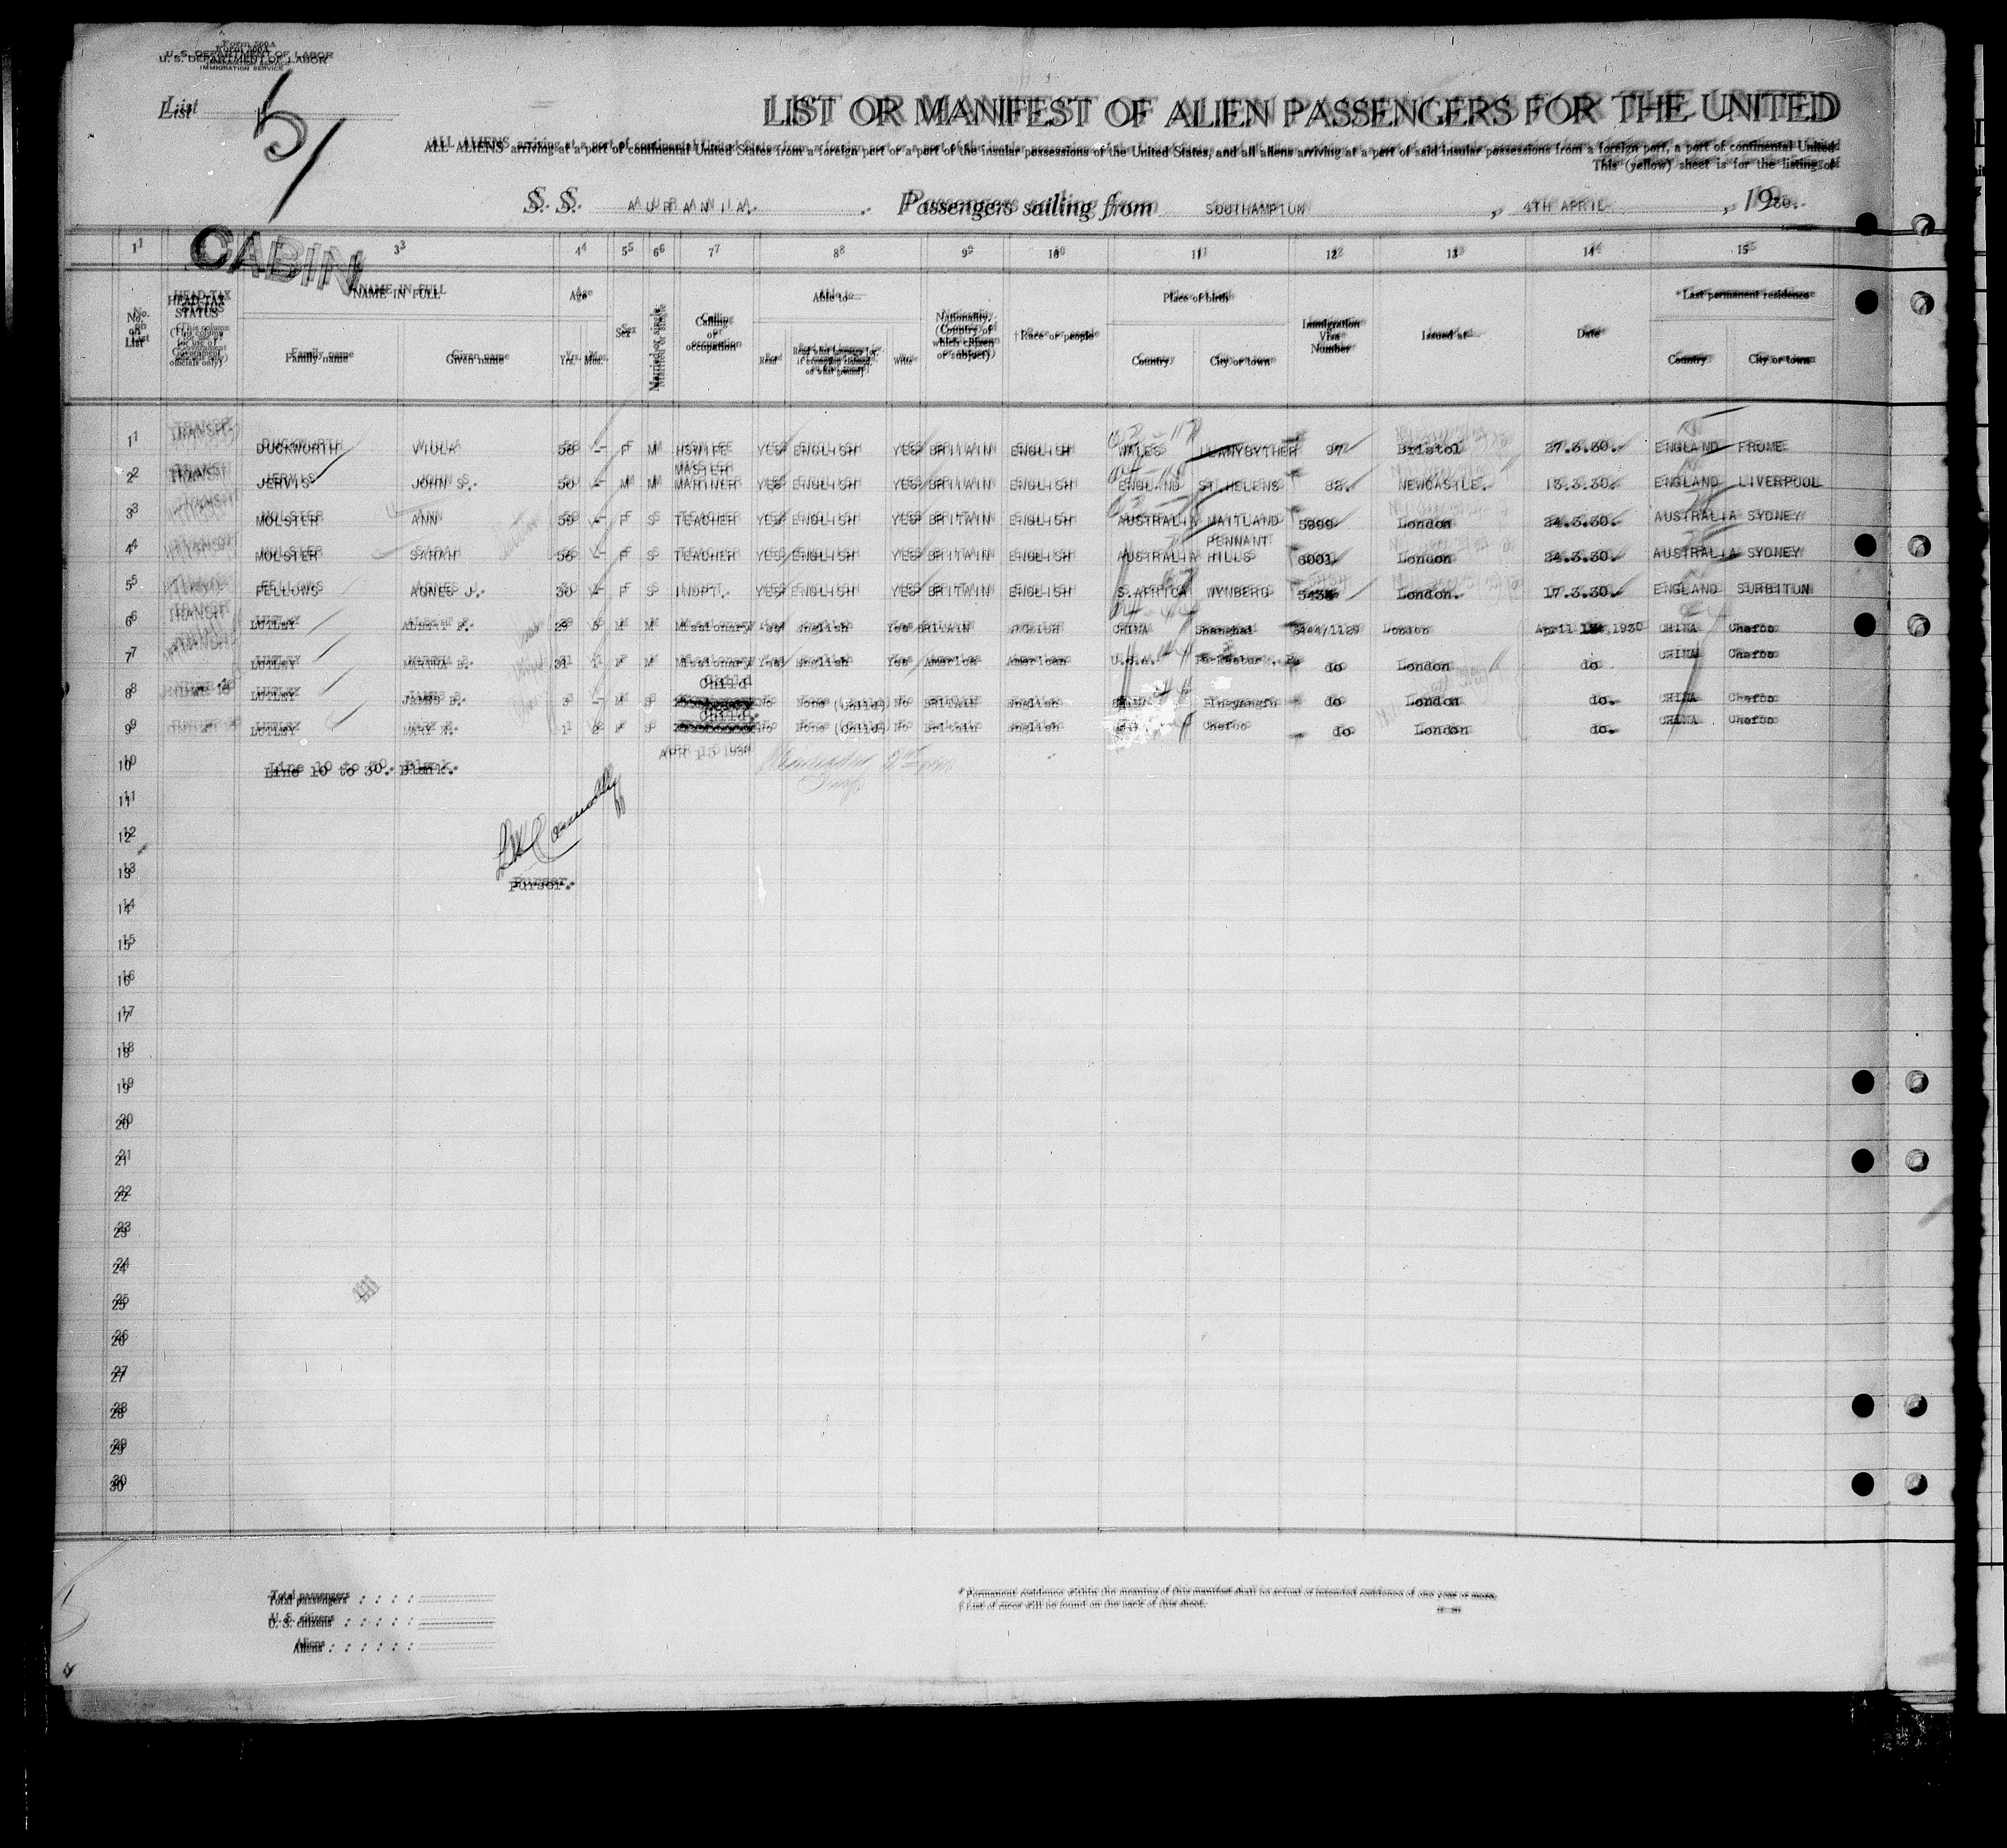 Form 500A
U. S. DEPARTMENT OF LABOR
IMMIGRATION SERVICE
List 5
LIST OR MANIFEST OF ALIEN PASSENGERS FOR THE UNITED
ALL ALIENS arriving at a port of continental United States from a foreign port or a port of the insular possessions of the United States, and all aliens arriving at a port of said insular possessions from a foreign port, a port of continental United
This (yellow) sheet is for the listing of
S. S. AURANIA. Passengers sailing from SOUTHAMPTON, 4TH APRIL, 1930.
CABIN
1 3 4 5 6 7 8 9 10 11 12 13 14 15
No. on List
HEAD-TAX STATUS (This column for use of Government officials only)
NAME IN FULL
Family name Given name
Age
Yrs. Mos.
Sex
Married or single
Calling or occupation
Able to—
Read Write
Nationality. (Country of which citizen or subject)
†Race or people
Place of birth
Country City or town
Immigration Visa Number
Issued at—
Date
*Last permanent residence
Country City or town
1 DUCKWORTH VIOLA 58 - F M HSWIFE YES ENGLISH YES BRITAIN ENGLISH WALES LLANYBYTHER 97 Bristol 27.3.30. ENGLAND FROME
2 JERVIS JOHN S. 50 - M M MASTER MARINER YES ENGLISH YES BRITAIN ENGLISH ENGLAND ST.HELENS 82. NEWCASTLE. 13.3.30. ENGLAND LIVERPOOL
3 MOLSTER ANN 59 - F S TEACHER YES ENGLISH YES BRITAIN ENGLISH AUSTRALIA MAITLAND 5999 London 24.3.30. AUSTRALIA SYDNEY
4 MOLSTER SARAH 56 - F S TEACHER YES ENGLISH YES BRITAIN ENGLISH AUSTRALIA PENNANT HILLS 6001 London 24.3.30. AUSTRALIA SYDNEY
5 FELLOWS AGNES J. 30 - F S YES ENGLISH YES BRITAIN ENGLISH S.AFRICA WYNBERG London. 17.3.30. ENGLAND SURBITON
6 LUTLEY ALBERT F. 29 M M Missionary Yes English Yes BRITAIN ENGLISH CHINA Shanghai London April 1930 CHINA Chefoo
7 LUTLEY MARTHA 31 F M Missionary Yes English Yes America American U.S.A. do London do CHINA Chefoo
8 LUTLEY JAMES 3 - M S Child No None (Child) No BRITAIN English do London do. CHINA Chefoo
9 LUTLEY MARY 1 F S Child. No None (Child) No Britain English Chefoo do London do. CHINA Chefoo
APR 13 1930
10 Line 10 to 30. Blank.
11
12
13
Purser.
14
15
16
17
18
19
20
21
22
23
24
25
26
27
28
29
30
Total passengers
U. S. citizens
Aliens
* Permanent residence within the meaning of this manifest shall be actual or intended residence of one year or more.
† List of races will be found on the back of this sheet.